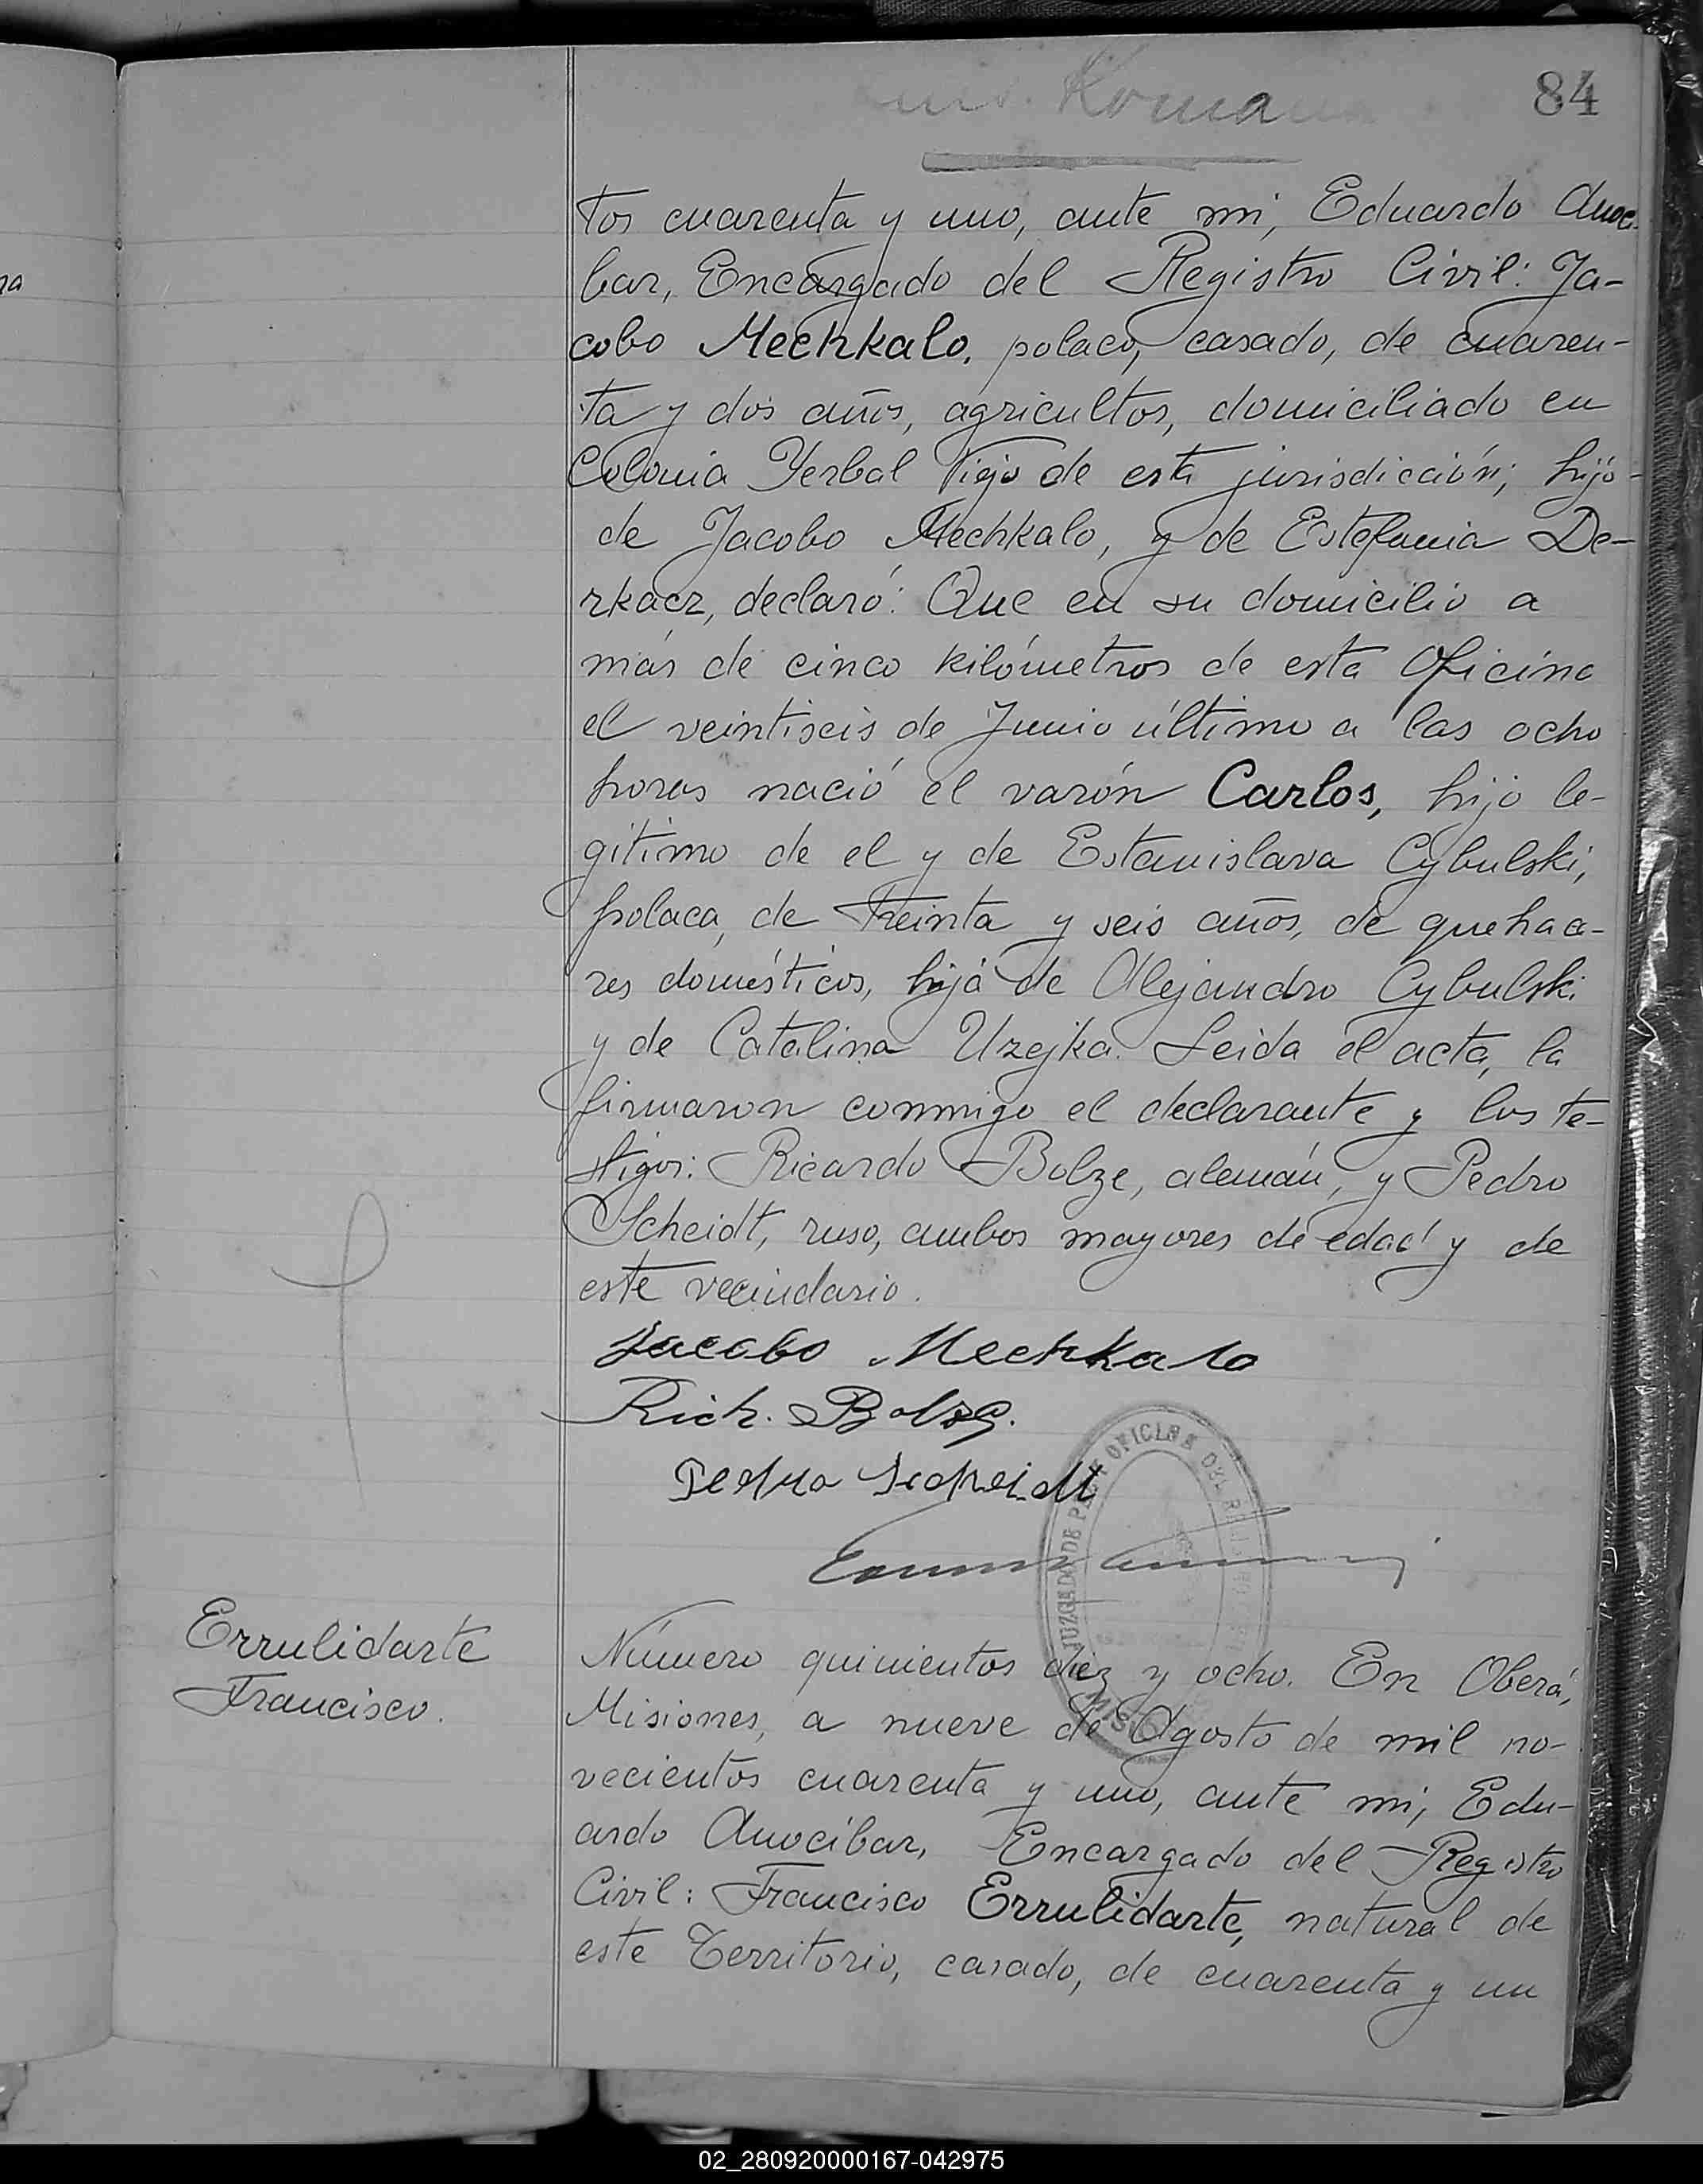 84
tos cuarenta y uno, ante mi, Eduardo Anoci-
bar, Encargado del Registro Civil: Ja-
cobo Mechkalo, polaco, casado, de cuaren-
ta y dos años, agricultor, domiciliado en
Colonia Yerbal Viejo de esta jurisdicción; hijo-
de Jacobo Mechkalo, y de Estefania De-
rkacz, declaró: Que en su domicilio a
más de cinco kilómetros de esta Oficina
el veintiseis de Junio último a las ocho
horas nació el varón Carlos, hijo le-
gitimo de el y de Estanislava Cybulski,
polaca, de treinta y seis años, de quehace-
res domésticos, hija de Alejandro Cybulski
y de Catalina Uzejka. Leida el acta, la
firmaron conmigo el declarante y los te-
stigos: Ricardo Bolze, alemán, y Pedro
Scheidt, ruso, ambos mayores de edad y de
este vecindario.
Jacobo Mechkalo
Rich. Bolze.
Pedro Scheidt
JUZGADO DE PAZ OFICINA DEL
Errulidarte
Francisco.
Número quinientos diez y ocho. En Oberá,
Misiones, a nueve de Agosto de mil no-
vecientos cuarenta y uno, ante mi, Edu-
ardo Anocíbar, Encargado del Registro
Civil: Francisco Errulidarte, natural de
este Territorio, casado, de cuarenta y un
02_280920000167-042975